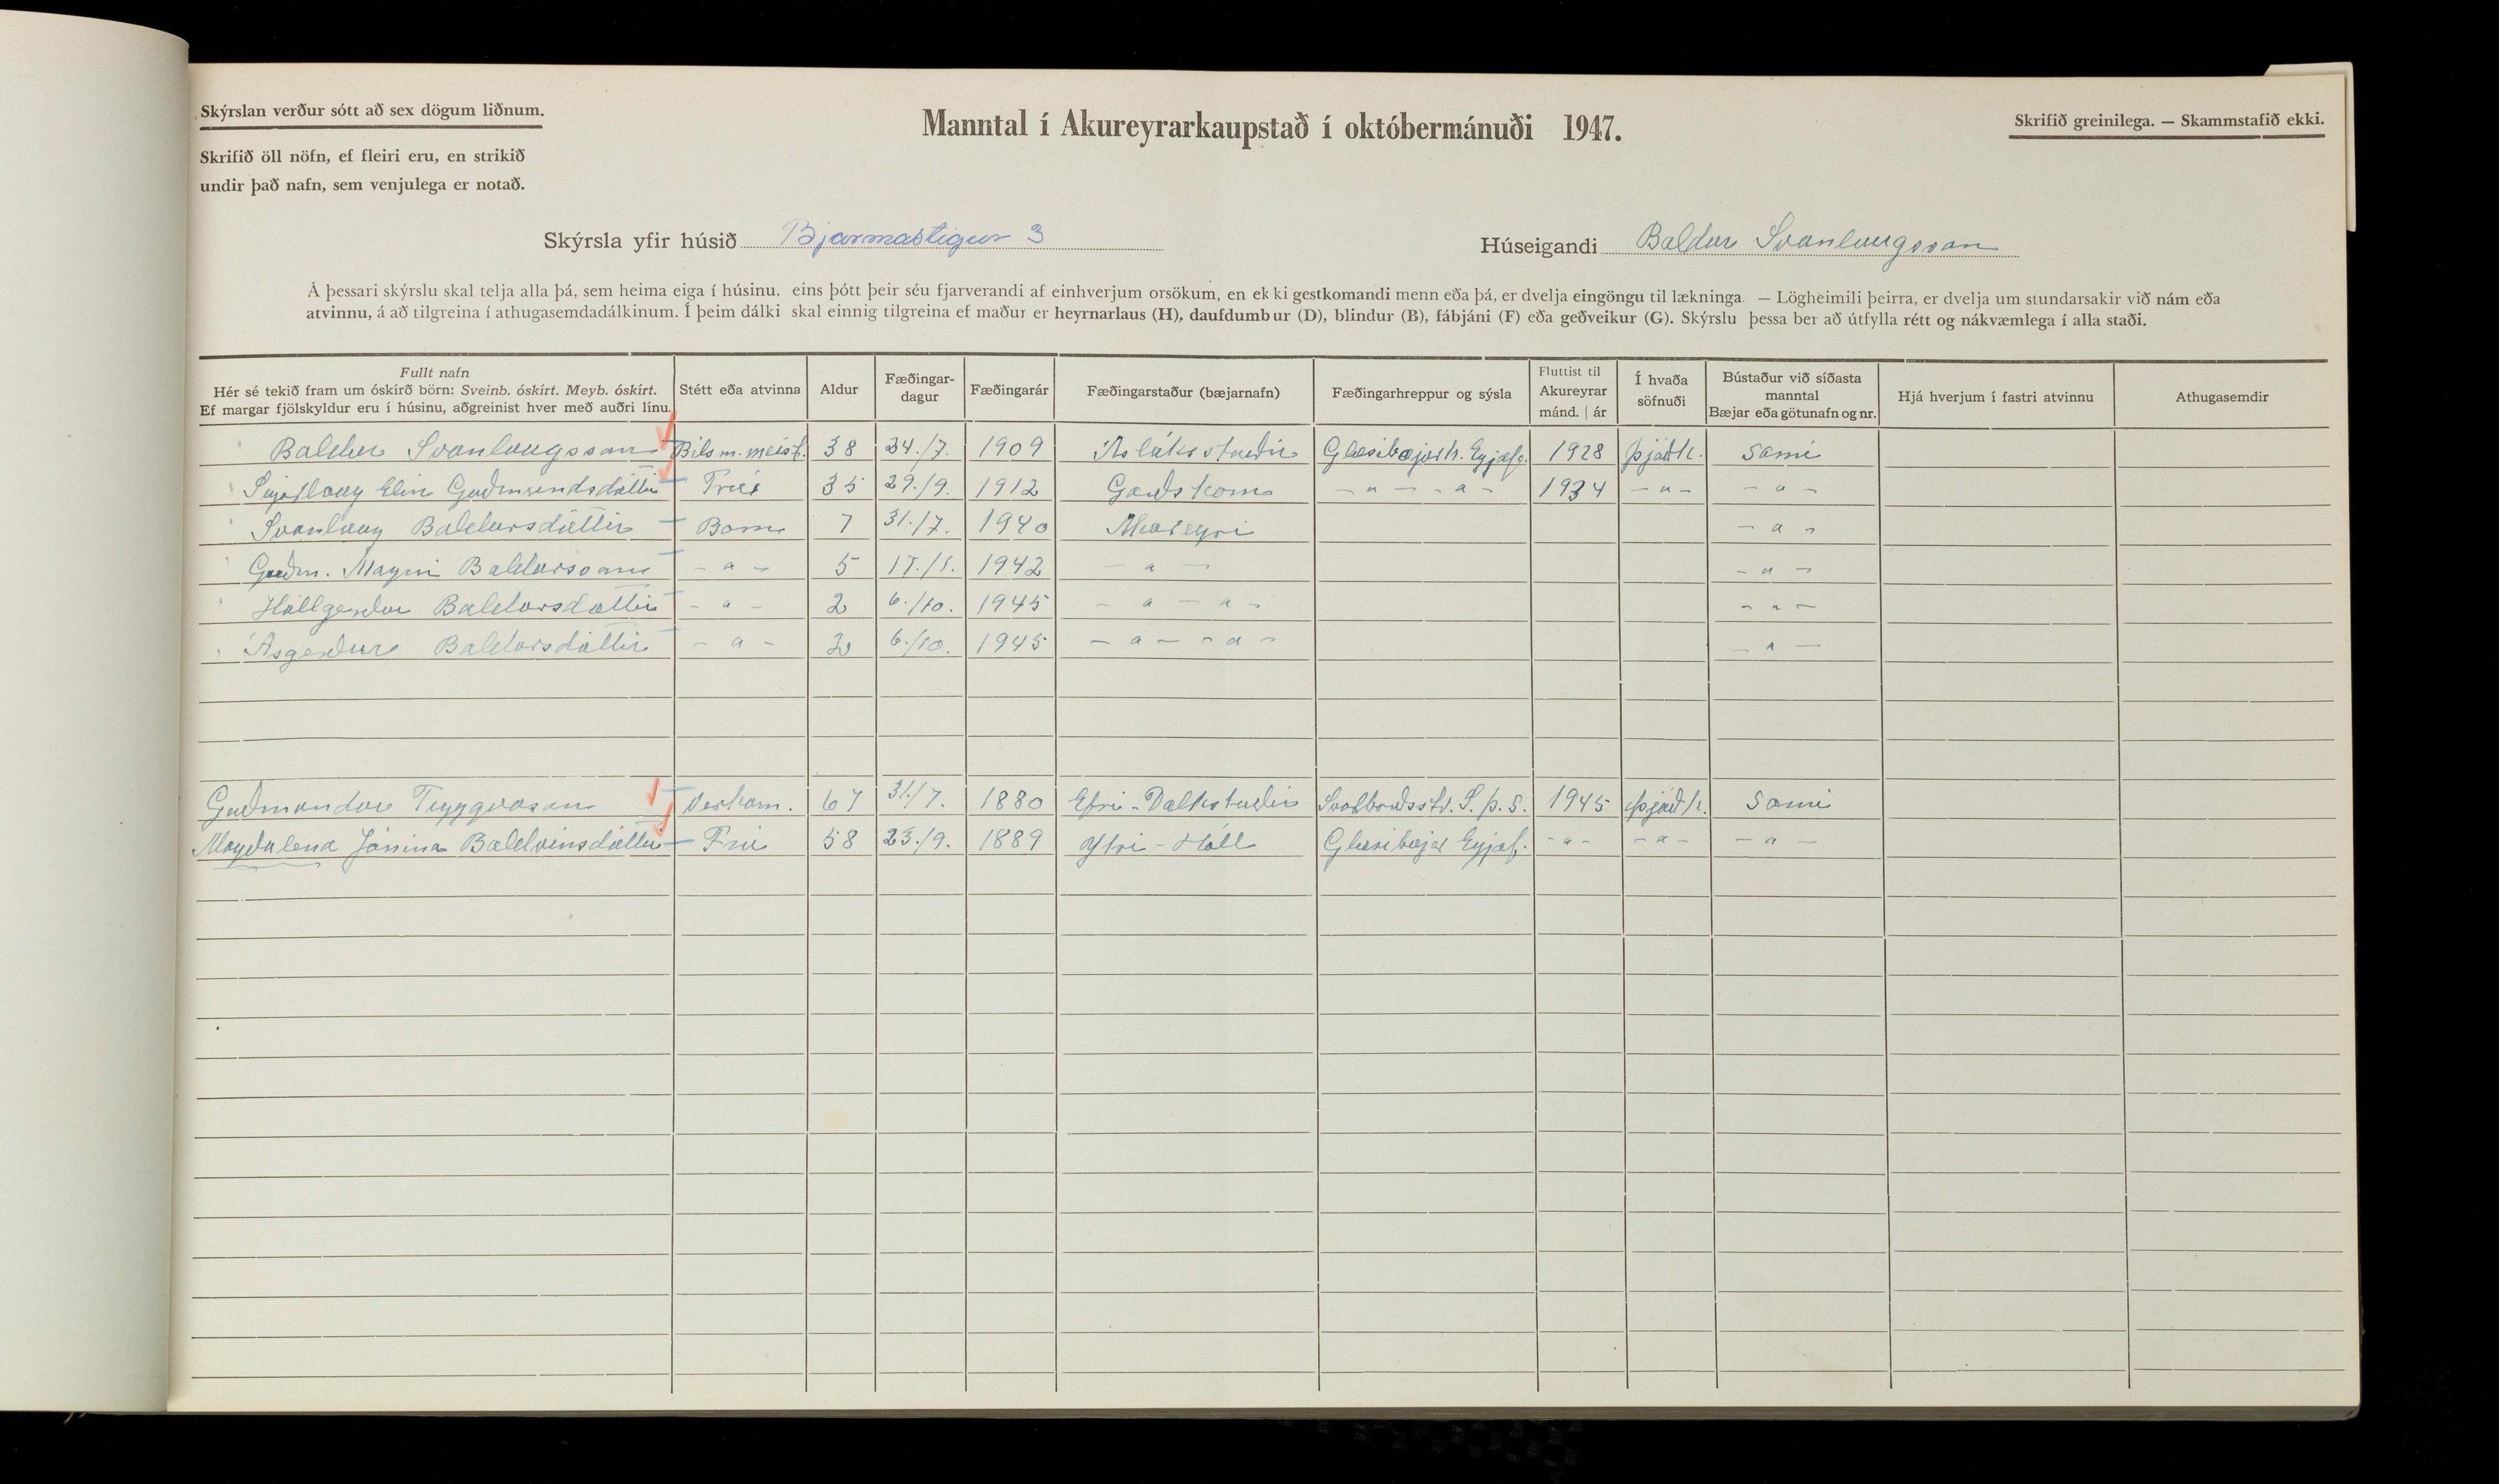 Skýrslan verður sótt að sex dögum liðnum.
Skrifið öll nöfn, ef fleiri eru, en strikið
undir það nafn, sem venjulega er notað.
Manntal í Akureyrarkaupstað í októbermánuði 1947.
Skrifið greinilega. — Skammstafið ekki.
Skýrsla yfir húsið Bjarmastigur 3
Húseigandi Baldur Svanlaugsson
Á þessari skýrslu skal telja alla þá, sem heima eiga í húsinu, eins þótt þeir séu fjarverandi af einhverjum orsökum, en ekki gestkomandi menn eða þá, er dvelja eingöngu til lækninga. — Lögheimili þeirra, er dvelja um stundarsakir við nám eða
atvinnu, á að tilgreina í athugasemdadálkinum. Í þeim dálki skal einnig tilgreina ef maður er heyrnarlaus (H), daufdumbur (D), blindur (B), fábjáni (F) eða geðveikur (G). Skýrslu þessa ber að útfylla rétt og nákvæmlega í alla staði.
Fullt nafn
Hér sé tekið fram um óskírð börn: Sveinb. óskírt. Meyb. óskírt.
Ef margar fjölskyldur eru í húsinu, aðgreinist hver með auðri línu.
Stétt eða atvinna
Aldur
Fæðingar-
dagur
Fæðingarár
Fæðingarstaður (bæjarnafn)
Fæðingarhreppur og sýsla
Fluttist til
Akureyrar
mánd. | ár
Í hvaða
söfnuði
Bústaður við síðasta
manntal
Bæjar eða götunafn og nr.
Hjá hverjum í fastri atvinnu
Athugasemdir
Baldur Svanlaugsson Bílsm.meist. 38 24./7. 1909 Ásláksstaðir Glæsibæjarh. Eyjaf. 1928 þjóðk. Sami
Elin Guðmundsdóttir Frú 35 29./9. 1912 Garðshorn - " - - " - 1934 - " - - " -
Svanlaug Baldursdóttir Barn 7 31./7. 1940 Akureyri - " -
Guðm. Magni Baldursson - " - 5 1942 - " - - " -
Hallgerður Baldursdóttir - " - 2 6./10. 1945 - " - " - - " -
Ásgerður Baldursdóttir - " - 2 6./10. 1945 - " - - " - - " -
Guðmundur Tryggvason Verkam. 67 31./7. 1880 Efri-Dálkstaðir Svalbarðsstr. S. þ. s. 1945 þjóðk. Sami
Magdalena Jónína Baldvinsdóttir Frú 58 23./9. 1889 Ytri-Hóll Glæsibæjar Eyjaf. - " - - " - - " -